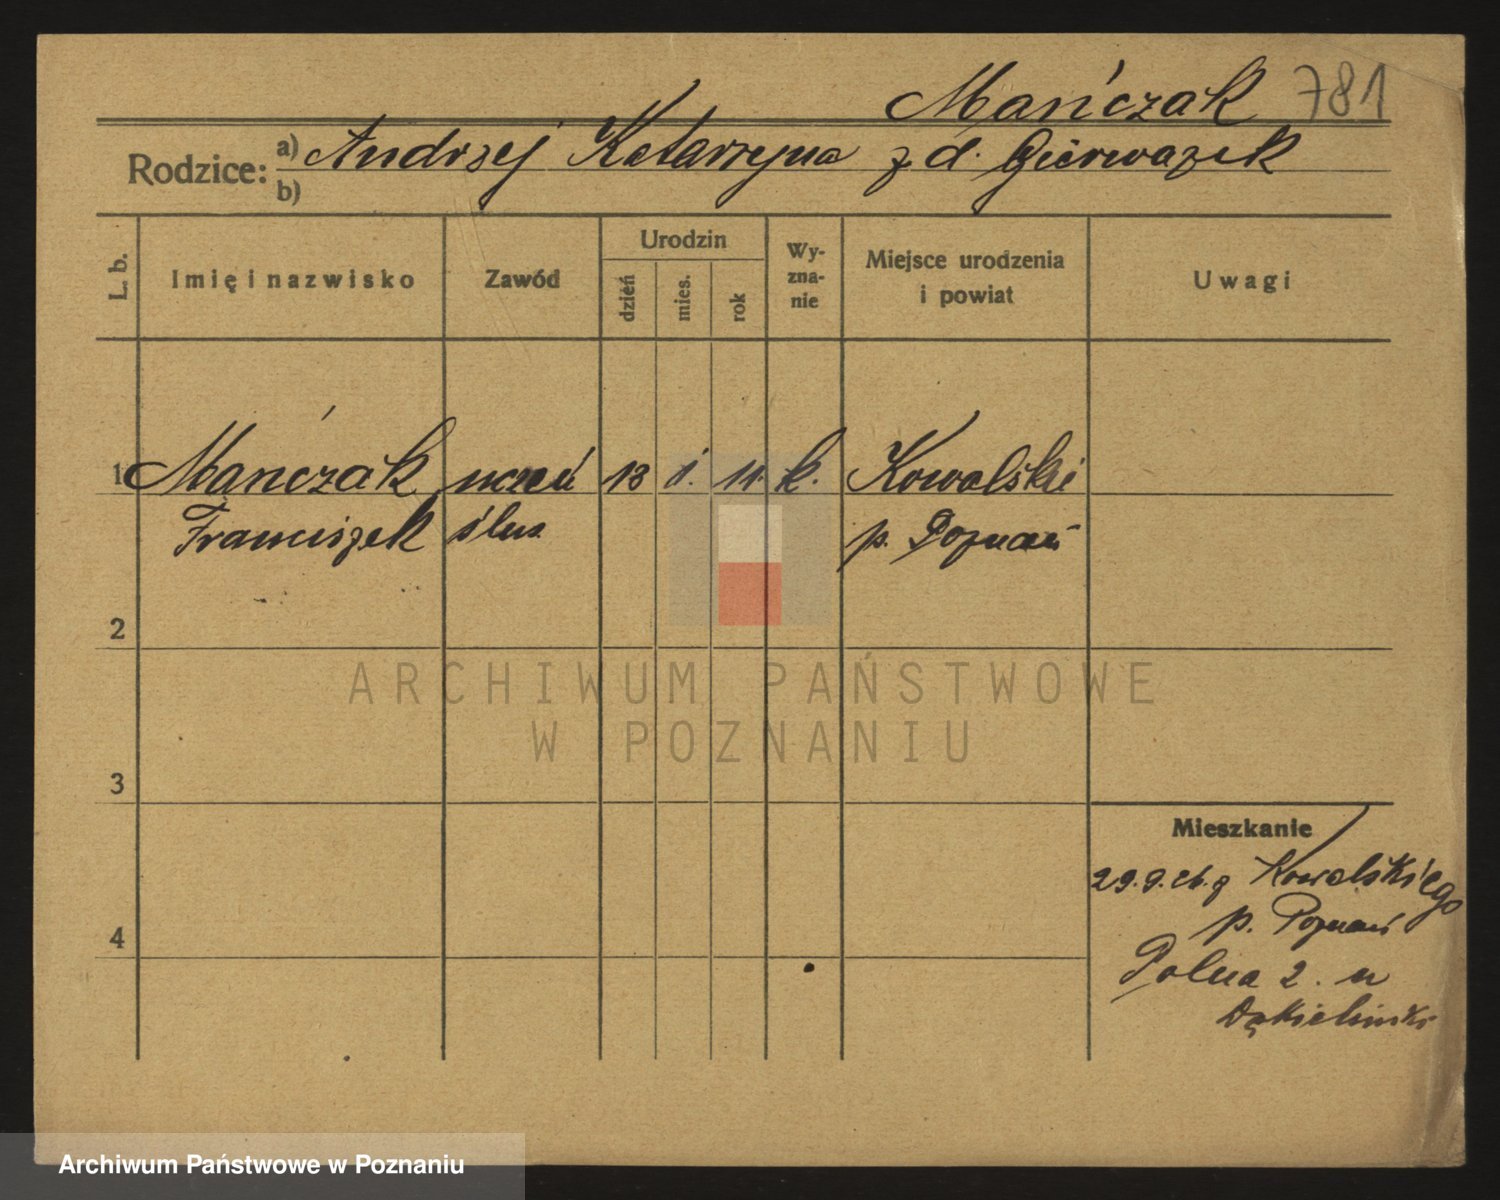 Mańczak 781
Rodzice: a) Andrzej Katarzyna z d. Gierwazek
b)
L. b. Imię i nazwisko Zawód Urodzin dzień mies. rok Wyznanie Miejsce urodzenia i powiat Uwagi
1 Mańczak uczeń 13 1. 11. k. Kowalskie
Franciszek ślus. p. Poznań
2
3
4
Mieszkanie
29.9.26. z Kowalskiego
p. Poznań
Polna 2. u
ARCHIWUM PAŃSTWOWE
W POZNANIU
Archiwum Państwowe w Poznaniu